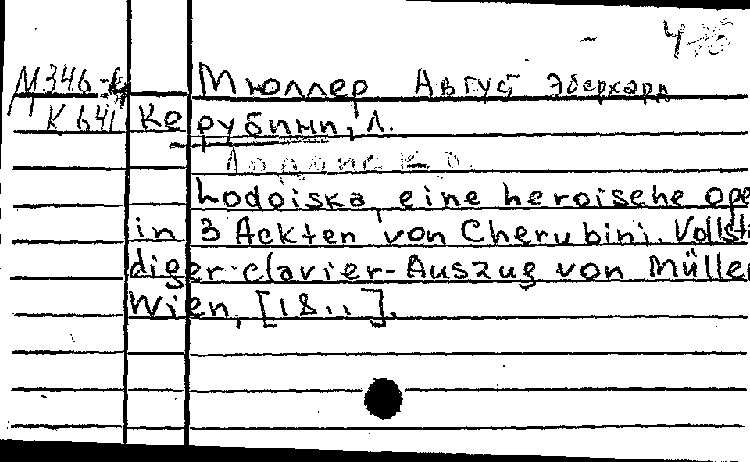 М346-
Мюллер Август Эберхард
К 641
Керубини, Л.
Lodoiska, eine heroische Ope
in 3 Ackten von Cherubini. Vollstä
diger clavier-Auszug von Müller
Wien, [18..].